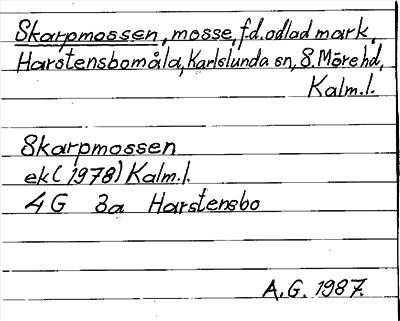 Skarpmossen, mosse, f.d. odlad mark,
Harstensbomåla, Karlslunda sn, S. Möre hd,
Kalm.l.
Skarpmossen
ek (1978) Kalm.l.
4G 3a Harstensbo
A.G. 1987.